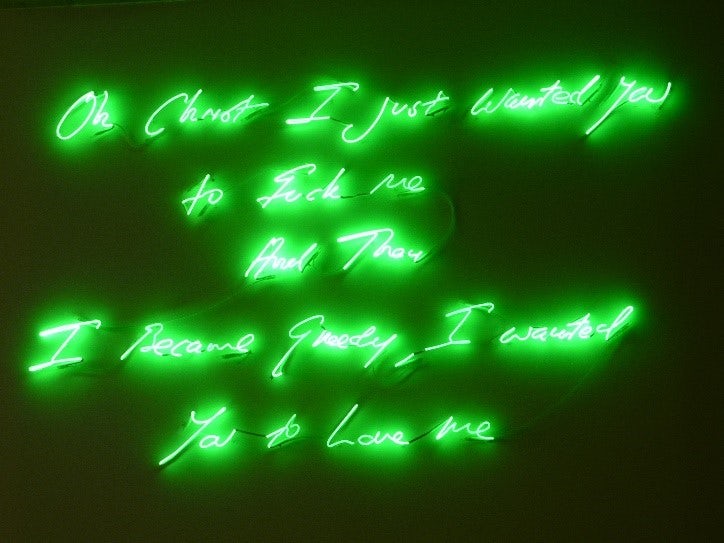 Oh Christ I just Wanted You
to Fuck me
And Then
I Became Greedy, I wanted
You to Love me